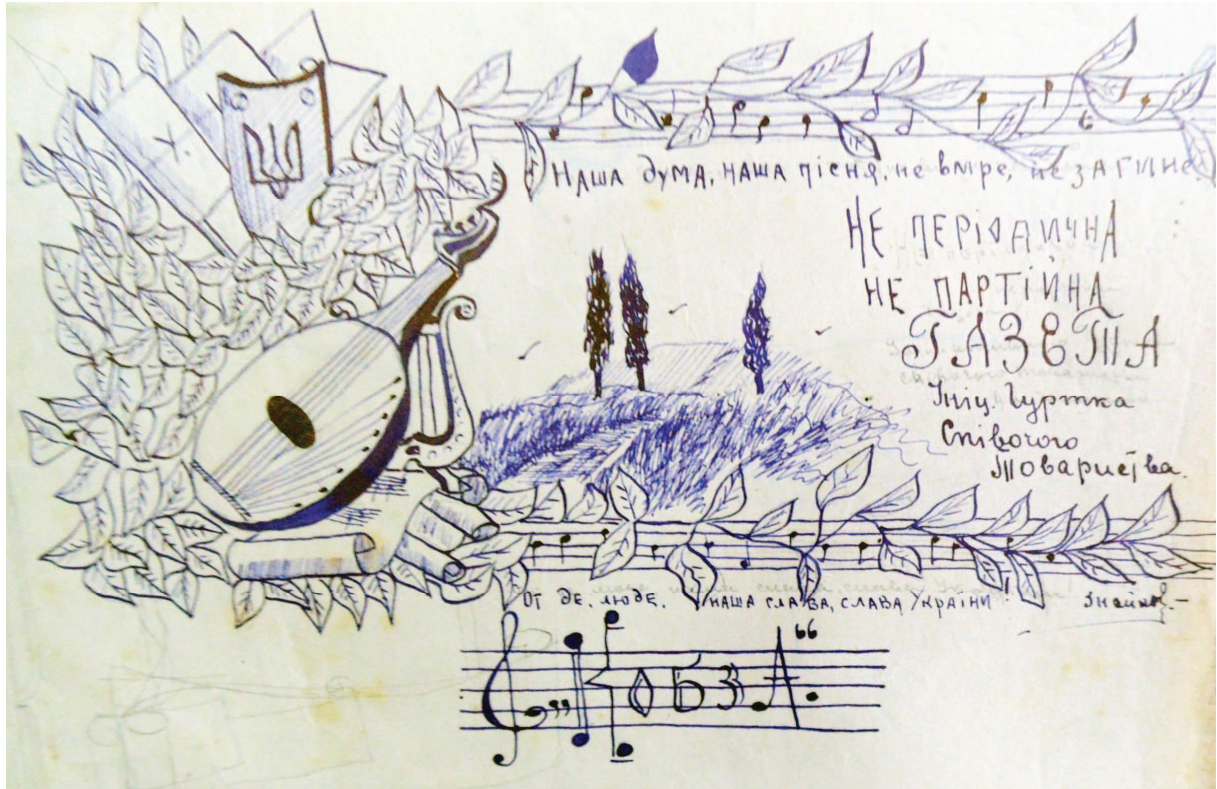 Наша дума, наша пісня, не вмре, не загіне.
НЕ ПЕРІОДИЧНА
НЕ ПАРТІЙНА
ГАЗЕТА
Гуртка
Співочого
Товариства.
От де, люде, наша слава, слава України!
„КОБЗА"